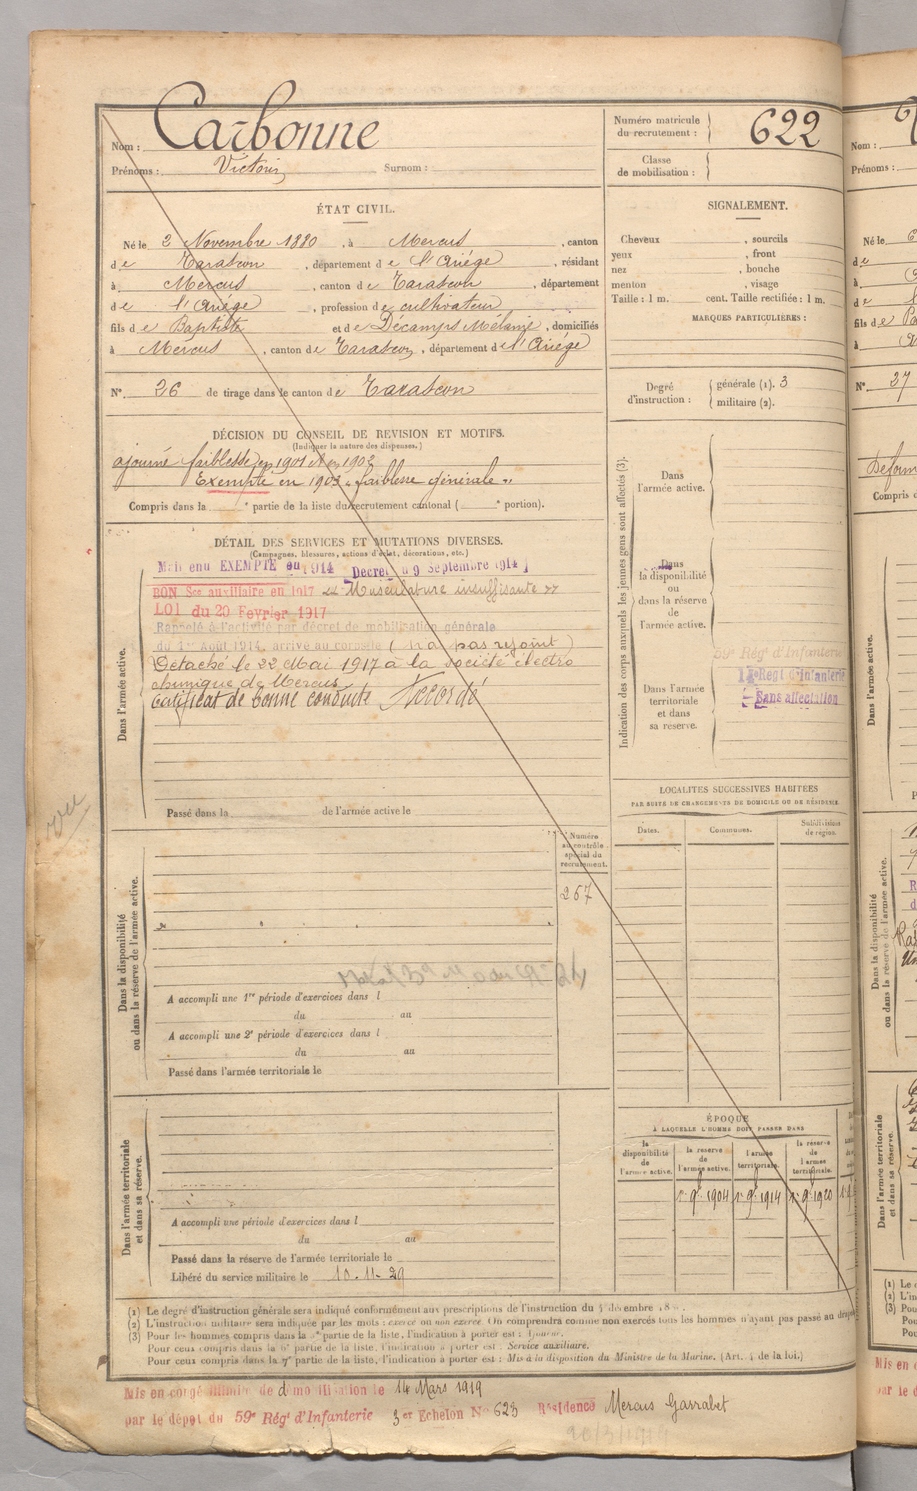 Nom : Carbonne
Prénoms : Victorin Surnom :
Numéro matricule
du recrutement : 622
Classe
de mobilisation :
ÉTAT CIVIL.
Né le 2 Novembre 1880, à Mercus, canton
de Tarascon, département de l'Ariége, résidant
à Mercus, canton de Tarascon, département
de l'Ariége, profession de cultivateur
fils de Baptiste et de Décamps Mélanie, domiciliés
à Mercus, canton de Tarascon, département de l'Ariége
N° 26 de tirage dans le canton de Tarascon
SIGNALEMENT.
Cheveux , sourcils
yeux , front
nez , bouche
menton , visage
Taille : 1 m. cent. Taille rectifiée : 1 m.
MARQUES PARTICULIÈRES :
Degré
d'instruction :
générale (1). 3
militaire (2).
DÉCISION DU CONSEIL DE REVISION ET MOTIFS.
(Indiquer la nature des dispenses.)
ajourné faiblesse en 1901 et en 1902
Exempté en 1903 « faiblesse générale »
Compris dans la e partie de la liste du recrutement cantonal ( e portion).
DÉTAIL DES SERVICES ET MUTATIONS DIVERSES.
(Campagnes, blessures, actions d'éclat, décorations, etc.)
Maintenu EXEMPTÉ en 1914 Decret du 9 Septembre 1914
BON Sce auxiliaire en 1917 « Musculature insuffisante »
LOI du 20 Février 1917
Rappelé à l'activité par décret de mobilisation générale
du 1er Août 1914, arrivé au corps le (n'a pas rejoint)
Détaché le 22 Mai 1917 à la Société électro
chimique de Mercus
Certificat de bonne conduite Accordé
Dans l'armée active.
Passé dans la de l'armée active le
Indication des corps auxquels les jeunes gens sont affectés (3).
Dans
l'armée active.
Dans
la disponibilité
ou
dans la réserve
de
l'armée active.
Dans l'armée
territoriale
et dans
sa réserve.
59e Régt d'Infanterie
Régt d'Infanterie
Sans affectation
LOCALITÉS SUCCESSIVES HABITÉES
PAR SUITE DE CHANGEMENTS DE DOMICILE OU DE RÉSIDENCE
Dates. Communes. Subdivision
de région.
Numéro
au contrôle
spécial du
recrutement.
267
Dans la disponibilité
ou dans la réserve de l'armée active.
A accompli une 1re période d'exercices dans l
du au
A accompli une 2e période d'exercices dans l
du au
Passé dans l'armée territoriale le
Dans l'armée territoriale
et dans sa réserve.
A accompli une période d'exercices dans l
du au
Passé dans la réserve de l'armée territoriale le
Libéré du service militaire le 10.11.29
ÉPOQUE
À LAQUELLE L'HOMME DOIT PASSER DANS
la
disponibilité
de
l'armée active.
la réserve
de
l'armée active.
l'armée
territoriale.
la réserve
de
l'armée
territoriale.
1er 9bre 1904 1er 9bre 1914 1er 9bre 1920
(1) Le degré d'instruction générale sera indiqué conformément aux prescriptions de l'instruction du décembre
(2) L'instruction militaire sera indiquée par les mots : exercé ou non exercé. On comprendra comme non exercés tous les hommes n'ayant pas passé au
(3) Pour les hommes compris dans la partie de la liste, l'indication à porter est : Ajourné.
Pour ceux compris dans la 6e partie de la liste, l'indication à porter est : Service auxiliaire.
Pour ceux compris dans la 7e partie de la liste, l'indication à porter est : Mis à la disposition du Ministre de la Marine. (Art. 4 de la loi.)
Mis en congé illimité de démobilisation le 14 Mars 1919
par le dépôt du 59e Régt d'Infanterie 3er Echelon N° 623 Résidence Mercus Garrabet
20/3/1919
vu
Nom :
Prénoms :
Né le
N° 27
Compris
Dans l'armée active.
Dans la disponibilité
ou dans la réserve de l'armée active.
Dans l'armée territoriale
et dans sa réserve.